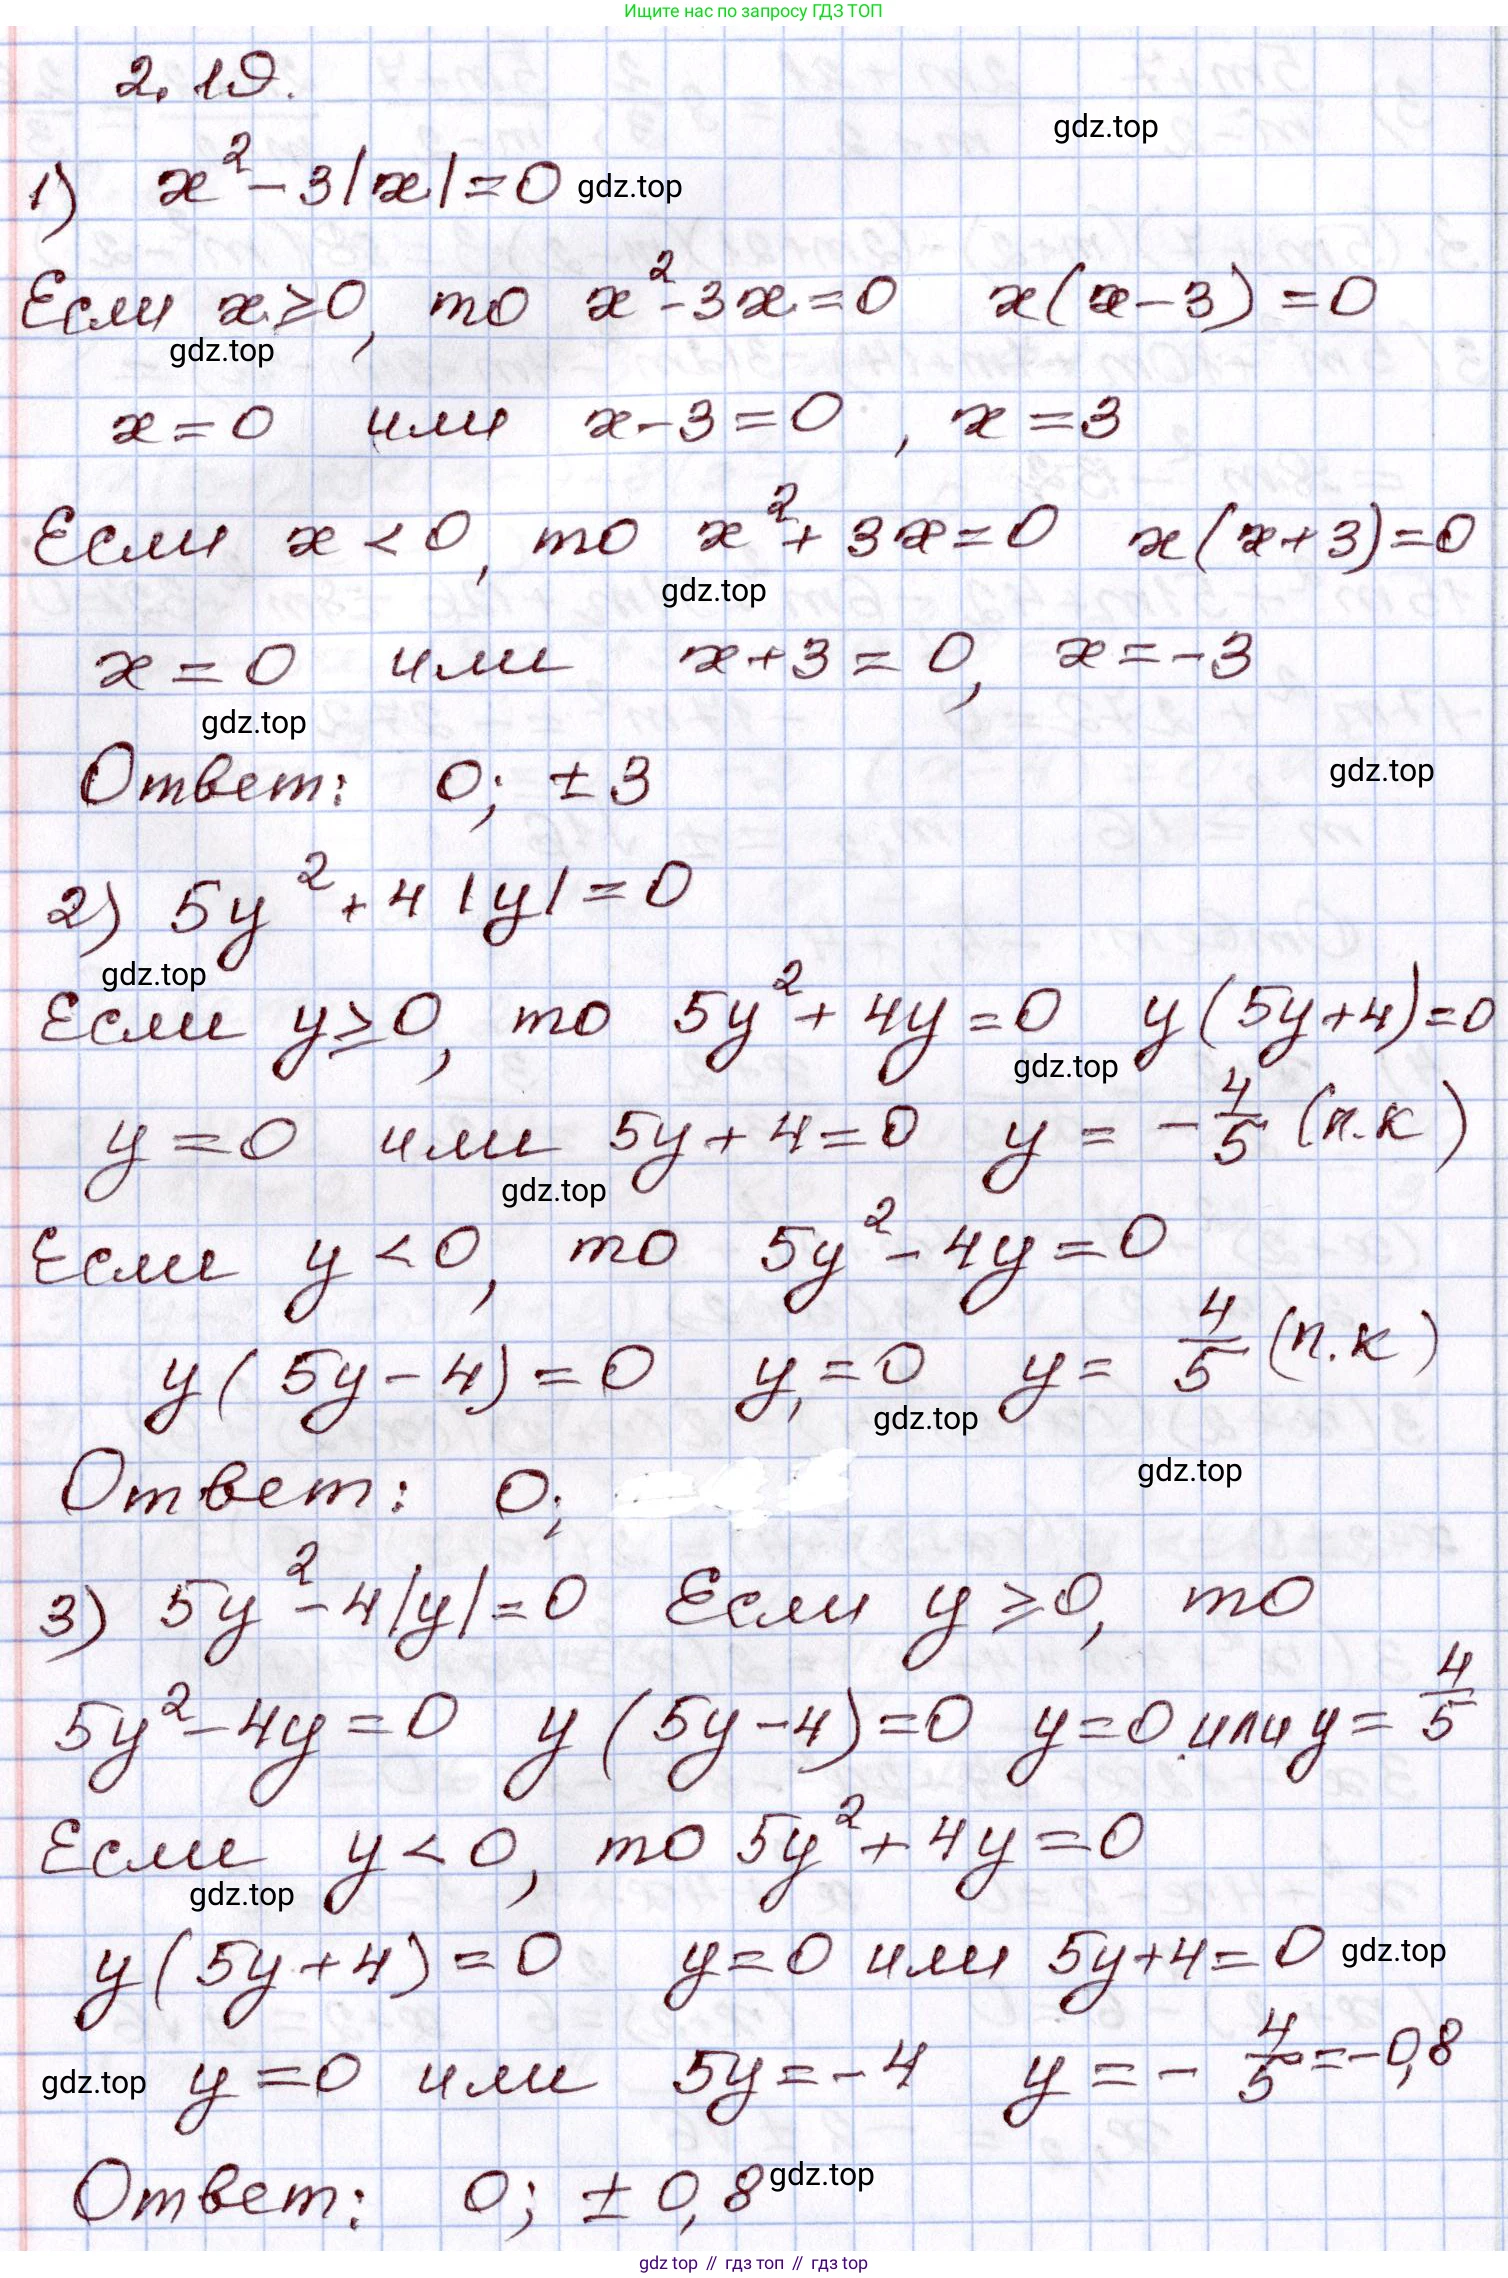 Ищите нас по запросу ГДЗ ТОП
2.19.
gdz.top
1) x² - 3|x| = 0 gdz.top
Если x ≥ 0, то x² - 3x = 0 x(x - 3) = 0
gdz.top
x = 0 или x - 3 = 0, x = 3
Если x < 0, то x² + 3x = 0 x(x + 3) = 0
gdz.top
x = 0 или x + 3 = 0, x = -3
gdz.top
Ответ: 0; ± 3
gdz.top
2) 5y² + 4|y| = 0
gdz.top
Если y ≥ 0, то 5y² + 4y = 0 y(5y + 4) = 0
gdz.top
y = 0 или 5y + 4 = 0 y = -4/5 (п.к)
gdz.top
Если y < 0, то 5y² - 4y = 0
y(5y - 4) = 0 y, = 0 y = 4/5 (п.к)
gdz.top
gdz.top
Ответ: 0;
3) 5y² - 4|y| = 0 Если y ≥ 0, то
5y² - 4y = 0 y(5y - 4) = 0 y = 0 или y = 4/5
Если y < 0, то 5y² + 4y = 0
gdz.top
y(5y + 4) = 0 y = 0 или 5y + 4 = 0 gdz.top
gdz.top y = 0 или 5y = -4 y = -4/5 = -0,8
Ответ: 0; ± 0,8 gdz.top
gdz top // гдз топ // гдз top